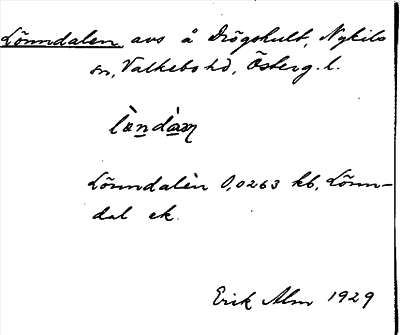 Lönndalen avs å Drögshult, Nykils
sn, Valkebo hd, Österg. l.
Lönndalèn 0,0263 kb, Lönn-
dal ek.
Erik Alm 1929